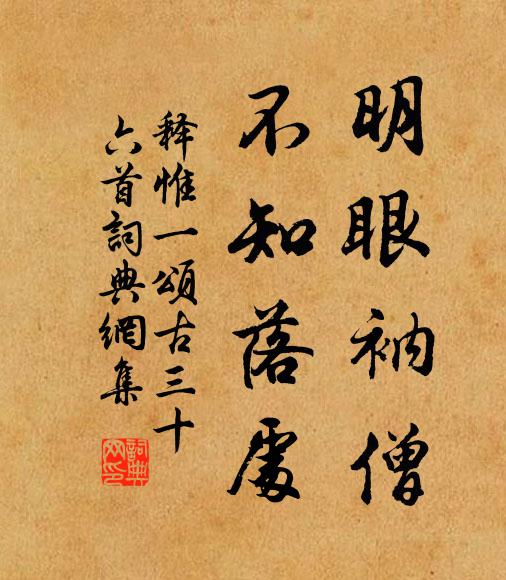 明眼衲僧
不知落處
释惟一頌古三十
六首詞典網集
詞典网印